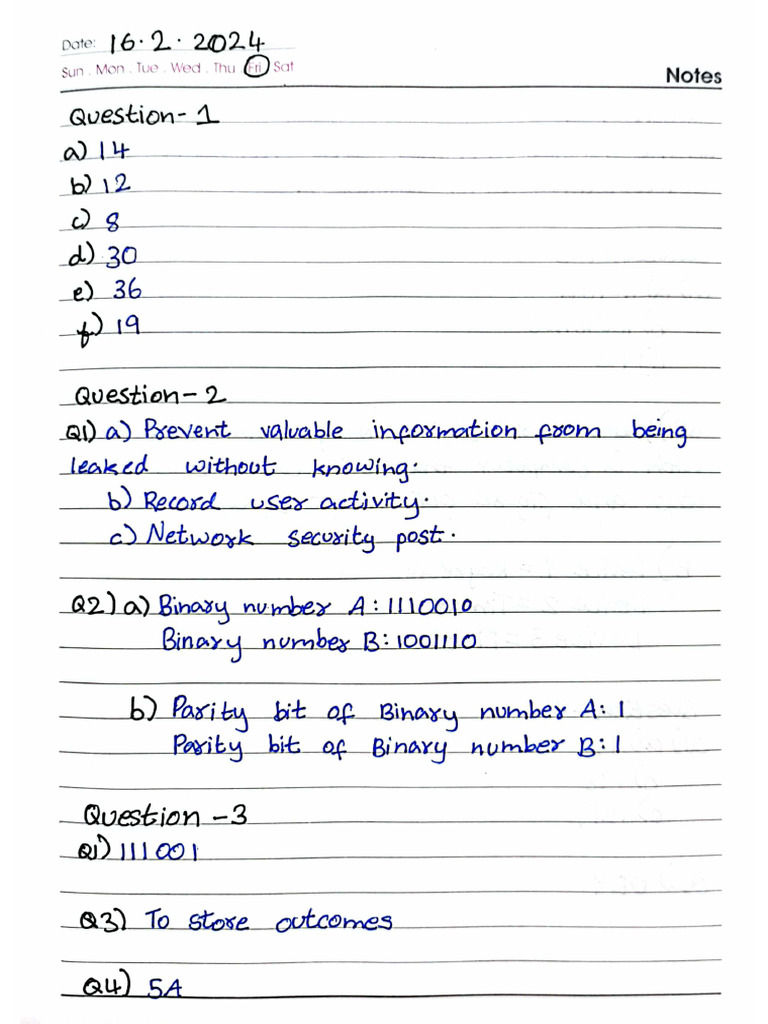 Date: 16.2.2024
Sun . Mon . Tue . Wed . Thu . Fri . Sat
Notes
Question-1
a) 14
b) 12
c) 8
d) 30
e) 36
f) 19
Question-2
Q1) a) Prevent valuable information from being
leaked without knowing.
b) Record user activity.
c) Network security post.
Q2) a) Binary number A: 1110010
Binary number B: 1001110
b) Parity bit of Binary number A: 1
Parity bit of Binary number B: 1
Question -3
Q1) 111001
Q3) To store outcomes
Q4) 5A